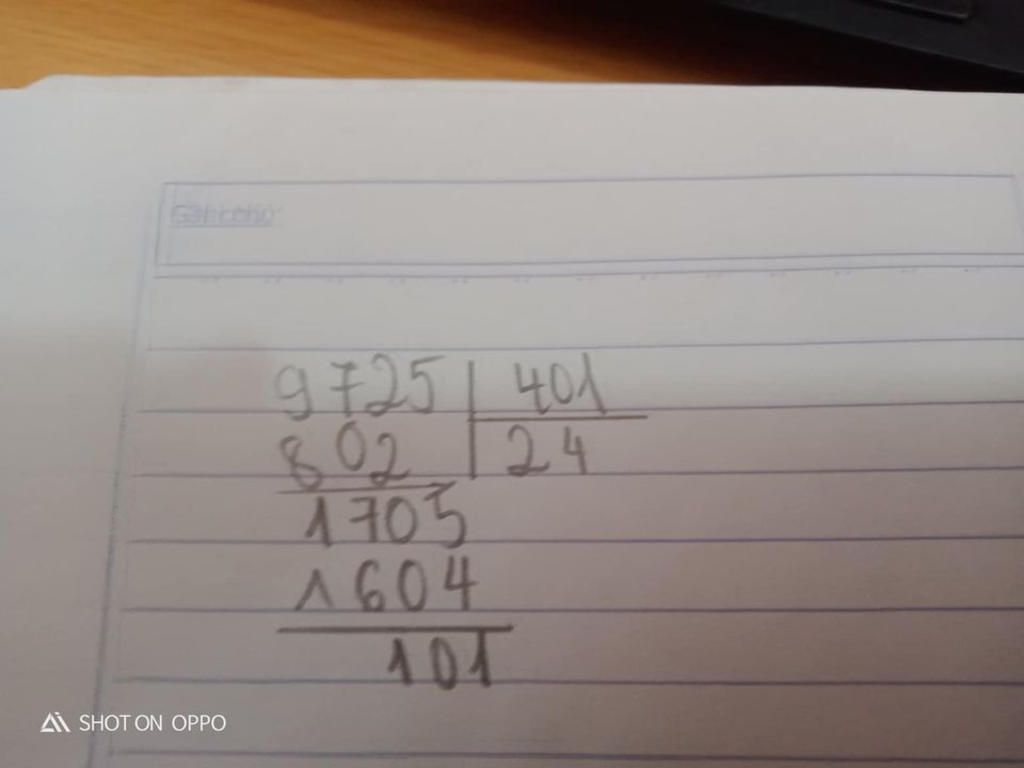 9725 401
802 24
1705
1604
101
SHOT ON OPPO